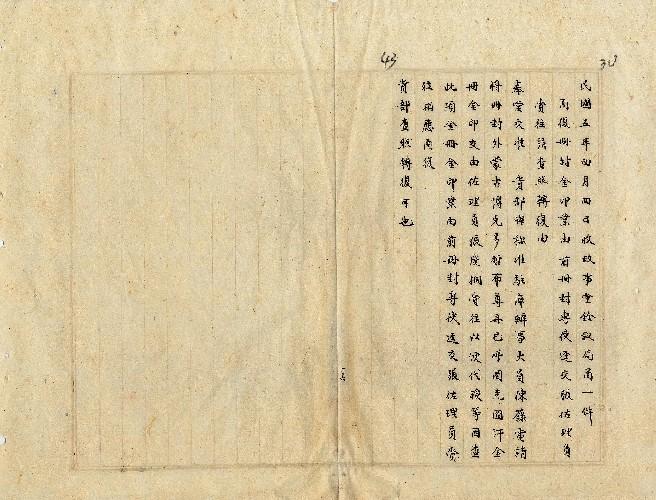 民國五年四月四日收政事堂銓敘局函一件
函復冊封金印業由前冊封專使逕交張佐理員
齎往請查照轉復由
奉堂交准 貴部
准駐庫辦事大員陳籙電請
將冊封外蒙古博克多哲布尊丹巴呼圖克圖汗金
冊金印交由佐理員張慶桐齎往以便代授等因查
此項金冊金印業由前冊封專使逕交張佐理員齎
往相應函復
貴部查照轉復可也
43